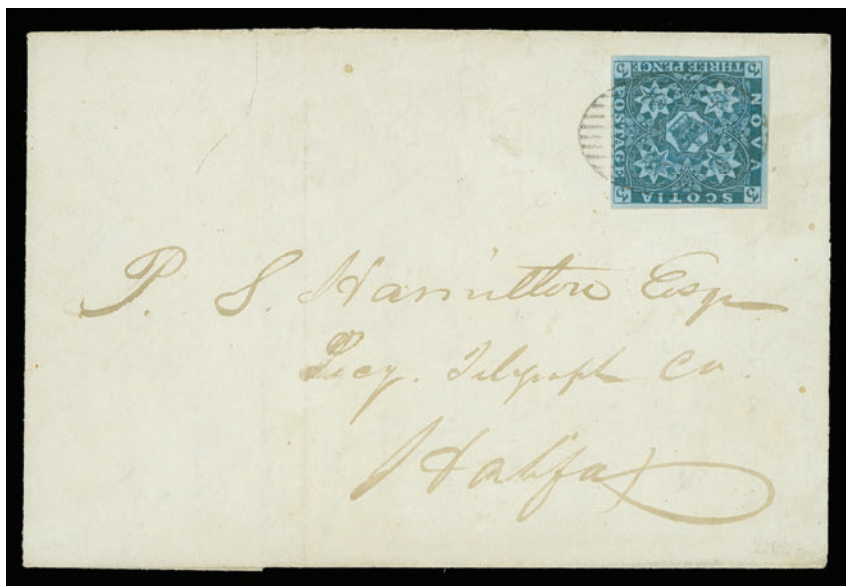 THREE PENCE
NOVA
SCOTIA
POSTAGE
3 3 3 3
P. S. Hamilton Esqr
Secy. Telegraph Co.
Halifax